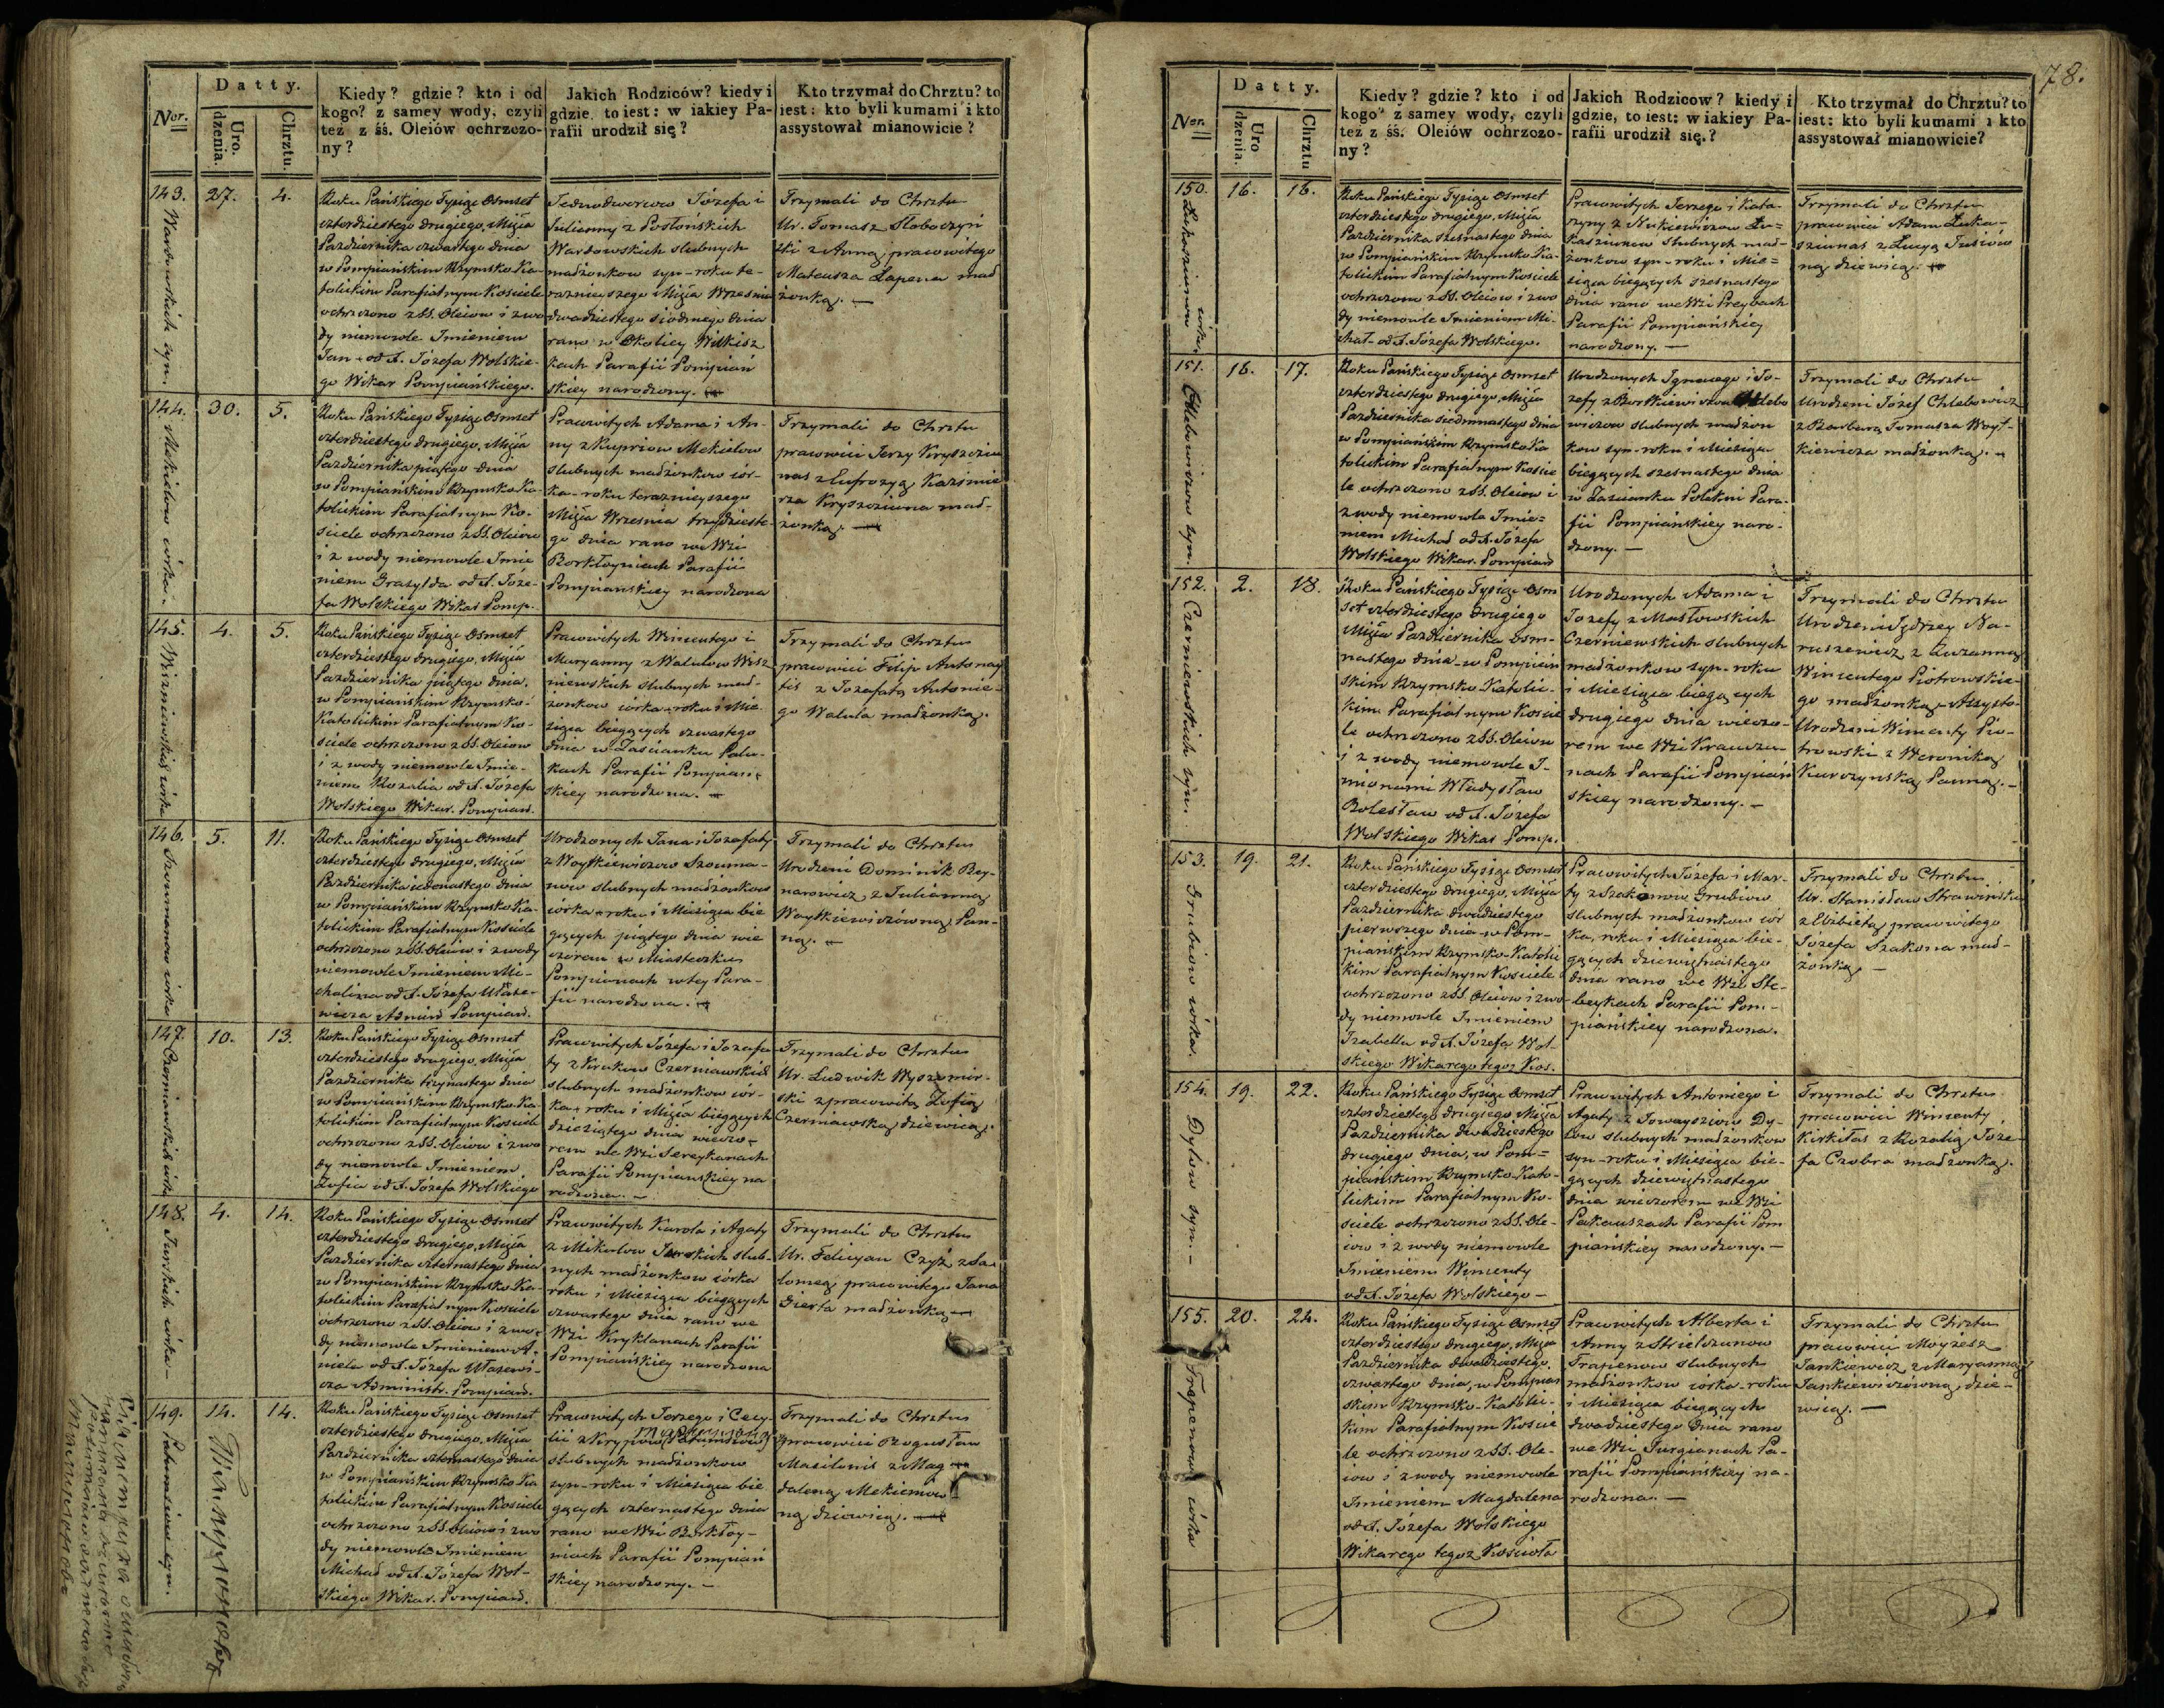 78.
Datty.
Ner.
Uro.
dzenia.
Chrztu.
Kiedy? gdzie? kto i od
kogo? z samey wody, czyli
też z śś. Oleiów ochrzczo-
ny?
Jakich Rodziców? kiedy i
gdzie, to iest: w iakiey Pa-
rafii urodził się?
Kto trzymał do Chrztu? to
iest: kto byli kumami i kto
assystował mianowicie?
143.
27.
4.
Wardowskich syn.
Roku Pańskiego Tysiąc Osmset
czterdziestego drugiego, Msca
Pazdziernika czwartego dnia
w Pompiańskim Rzymsko Ka-
tolickim Parafialnym Kosciele
ochrzczono z SS. Oleiow i z wo
dy niemowle Imieniem
Jan - od X. Józefa Wolskie-
go Wikar Pompiańskiego.
Jednodworcow Józefa i
Julianny z Posłońskich
Wardowskich slubnych
małżonkow syn - roku te-
raznieyszego Msca Wrzesnia
dwadziestego siódmego dnia
rano w Okolicy Wilkisz
kach Parafii Pompiań
skiey narodzony.
Trzymali do Chrztu
Ur. Tomasz Słoboczyń
ski z Anną pracowitego
Mateusza Łapena mał
żonką. —
144.
30.
5.
Mekielow córka.
Roku Pańskiego Tysiąc Osmset
czterdziestego drugiego, Msca
Pazdziernika piątego dnia
w Pompiańskim Rzymsko Ka-
tolickim Parafialnym Ko-
sciele ochrzczono z SS. Oleiow
i z wody niemowle Imie
niem Grasylda od X. Józe-
fa Wolskiego Wikar Pomp.
Pracowitych Adama i An-
ny z Kupriow Mekielow
slubnych małżonkow cór-
ka - roku teraznieyszego
Msca Wrzesnia trzydzieste-
go dnia rano we Wsi
Borkłoyniach Parafii
Pompiańskiey narodzona
Trzymali do Chrztu
pracowici Jerzy Kryszcziu
nas z Eufrozyą Kazimie
rza Kryszcziuna mał-
żonką. —
145.
4.
5.
Wiszniewskich córka
Roku Pańskiego Tysiąc Osmset
czterdziestego drugiego, Msca
Pazdziernika piątego dnia.
w Pompiańskim Rzymsko-
Katolickim Parafialnym Ko-
sciele ochrzczono z SS. Oleiow
i z wody niemowle Imie-
niem Rozalia od X. Józefa
Wolskiego Wikar. Pompiań.
Pracowitych Wincentego i
Maryanny z Walulow Wisz
niewskich slubnych mał-
żonkow córka - roku i Mie
siąca bieżących czwartego
dnia w Zascianku Palu-
kach Parafii Pompiań-
skiey narodzona. —
Trzymali do Chrztu
pracowici Filip Antonay
tis z Jozafatą Antonie-
go Walula małżonką.
146.
5.
11.
Szoumanow córka
Roku Pańskiego Tysiąc Osmset
czterdziestego drugiego, Msca
Pazdziernika iedenastego dnia
w Pompiańskim Rzymsko Ka-
tolickim Parafialnym Kosciele
ochrzczono z SS. Oleiow i z wody
niemowle Imieniem Mi-
chalina od X. Józefa Ułase-
wicza Admin Pompiań.
Urodzonych Jana i Jozafaty
z Woytkiewiczow Szouma-
now slubnych małżonkow
córka - roku i Miesiąca bie
gących piątego dnia wie
czorem w Miasteczku
Pompianach w tey Para-
fii narodzona. —
Trzymali do Chrztu
Urodzeni Dominik Bey-
narowicz z Julianną
Woytkiewiczówną Pan-
ną. —
147.
10.
13.
Czerniawskich córka
Roku Pańskiego Tysiąc Osmset
czterdziestego drugiego, Msca
Pazdziernika trzynastego dnia
w Pompiańskim Rzymsko Ka-
tolickim Parafialnym Kosciele
ochrzczono z SS. Oleiow i z wo
dy niemowle Imieniem
Zofia od X. Józefa Wolskiego
Pracowitych Józefa i Jozafa-
ty z Krukow Czerniawskich
slubnych małżonkow cór-
ka - roku i Msca bieżących
dziesiątego dnia wieczo-
rem we Wsi Sereykanach
Parafii Pompiańskiey na
rodzona. —
Trzymali do Chrztu
Ur. Ludwik Wyszomir-
ski z pracowitą Zofią
Czerniawską dziewicą.
148.
4.
14.
Jurskich córka —
Roku Pańskiego Tysiąc Osmset
czterdziestego drugiego, Msca
Pazdziernika czternastego dnia
w Pompiańskim Rzymsko Ka-
tolickim Parafialnym Kosciele
ochrzczono z SS. Oleiow i z wo-
dy niemowle Imieniem A-
niela od X. Józefa Ułasewi-
cza Administr. Pompiań.
Pracowitych Karola i Agaty
z Mikulow Jurskich slub-
nych małżonkow córka
roku i Miesiąca bieżących
czwartego dnia rano we
Wsi Kryklanach Parafii
Pompiańskiey narodzona
Trzymali do Chrztu
Ur. Felicyan Czyż z Sa-
lomeą pracowitego Jana
Gierta małżonką —
149.
14.
14.
Patumsiow syn.
Roku Pańskiego Tysiąc Osmset
czterdziestego drugiego, Msca
Pazdziernika czternastego dnia
w Pompiańskim Rzymsko Ka
tolickim Parafialnym Kosciele
ochrzczono z SS. Oleiow i z wo
dy niemowle Imieniem
Michał od X. Józefa Wol-
skiego Wikar. Pompiań.
Pracowitych Jerzego i Cecy-
lii z Krypiow Patumsiow
slubnych małżonkow
syn - roku i Miesiąca bie
gących czternastego dnia
rano we Wsi Borkłoy-
niach Parafii Pompiań
skiey narodzony. —
Trzymali do Chrztu
pracowici Bogusław
Masilonis z Mag
daleną Mekiemow
ną dziewicą. —
Datty.
Ner.
Uro
dzenia.
Chrztu
Kiedy? gdzie? kto i od
kogo? z samey wody, czyli
też z śś. Oleiów ochrzczo-
ny?
Jakich Rodzicow? kiedy i
gdzie, to iest: w iakiey Pa-
rafii urodził się.?
Kto trzymał do Chrztu? to
iest: kto byli kumami i kto
assystował mianowicie?
150.
16.
16.
Roku Pańskiego Tysiąc Osmset
czterdziestego drugiego, Msca
Pazdziernika szesnastego dnia
w Pompiańskim Rzymsko Ka-
tolickim Parafialnym Kosciele
ochrzczono z SS. Oleiow i z wo
dy niemowle Imieniem Mi-
chał - od X. Józefa Wolskiego.
Pracowitych Jerzego i Kata-
rzyny z Nickiewiczow Łu-
kasziunow slubnych mał-
żonkow syn - roku i Mie-
siąca bieżących szesnastego
dnia rano we Wsi Preybach
Parafii Pompiańskiey
narodzony. —
Trzymali do Chrztu
pracowici Adam Łuka-
sziunas z Łucyą Jusiów
ną dziewicą.
151.
16.
17.
Chlebowiczow syn.
Roku Pańskiego Tysiąc Osmset
czterdziestego drugiego, Msca
Pazdziernika siedmnastego dnia
w Pompiańskim Rzymsko Ka
tolickim Parafialnym Koscie
le ochrzczono z SS. Oleiow i
z wody niemowle Imie-
niem Michał od X. Józefa
Wolskiego Wikar. Pompiań
Urodzonych Ignacego i Jo-
zefy z Burtkiewiczow Chlebo
wiczow slubnych małżon
kow syn - roku i Miesiąca
bieżących szesnastego dnia
w Zascianku Polekni Para-
fii Pompiańskiey naro-
dzony. —
Trzymali do Chrztu
Urodzeni Józef Chlebowicz
z Barbarą Tomasza Woyt-
kiewicza małżonką. —
152.
2.
18.
Czerniewskich syn.
Roku Pańskiego Tysiąc Osm
set czterdziestego drugiego
Msca Pazdziernika osm-
nastego dnia - w Pompiań
skim Rzymsko-Katolic-
kim Parafialnym Koscie
le ochrzczono z SS. Oleiow
i z wody niemowle I-
mionami Władysław
Bolesław od X. Józefa
Wolskiego Wikar Pomp.
Urodzonych Adama i
Jozefy z Masłowskich
Czerniewskich slubnych
małżonkow syn - roku
i Miesiąca bieżących
drugiego dnia wieczo-
rem we Wsi Krauczu-
nach Parafii Pompiań
skiey narodzony. —
Trzymali do Chrztu
Urodzeni Jędrzey Na-
ruszewicz z Zuzanną
Wincentego Piotrowskie-
go małżonką - Assysto-
Urodzeni Wincenty Pio-
trowski z Weroniką
Kurczynską Panną. —
153.
19.
21.
Grubiow córka.
Roku Pańskiego Tysiąc Osmset
czterdziestego drugiego, Msca
Pazdziernika dwadziestego
pierwszego dnia - w Pom-
piańskim Rzymsko-Katolic
kim Parafialnym Kosciele
ochrzczono z SS. Oleiow i z wo-
dy niemowle Imieniem
Izabella od X. Józefa Wol-
skiego Wikarego tegoż Kos.
Pracowitych Józefa i Mar-
ty z Szakonow Grubiow
slubnych małżonkow cór
ka, roku i Miesiąca bie-
gących dziewiętnastego
dnia rano we Wsi Ste-
beykach Parafii Pom-
piańskiey narodzona.
Trzymali do Chrztu
Ur. Stanisław Strawiński
z Elżbietą pracowitego
Jozefa Szakona mał-
żonką. —
154.
19.
22.
Dylow syn. —
Roku Pańskiego Tysiąc Osmset
czterdziestego drugiego Msca
Pazdziernika dwadziestego
drugiego dnia, w Pom-
piańskim Rzymsko-Kato-
lickim Parafialnym Ko-
sciele ochrzczono z SS. Ole-
iow i z wody niemowle
Imieniem Wincenty
od X. Józefa Wolskiego —
Pracowitych Antoniego i
Agaty z Towaysziow Dy-
low slubnych małżonkow
syn - roku i Miesiąca bie-
gących dziewiętnastego
dnia wieczorem we Wsi
Pakauszach Parafii Pom
piańskiey narodzony. —
Trzymali do Chrztu
pracowici Wincenty
Kirkiłas z Rozalią Józe-
fa Czobra małżonką.
155.
20.
24.
Trapenow córka
Roku Pańskiego Tysiąc Osmset
czterdziestego drugiego, Msca
Pazdziernika dwadziestego
czwartego dnia, w Pompiań
skim Rzymsko-Katolic-
kim Parafialnym Koscie
le ochrzczono z SS. Ole-
iow i z wody niemowle
Imieniem Magdalena
od X. Józefa Wolskiego
Wikarego tegoż Koscioła
Pracowitych Alberta i
Anny z Strielczunow
Trapenow slubnych
małżonkow córka - roku
i Miesiąca bieżących
dwadziestego dnia rano
we Wsi Jurgianach Pa-
rafii Pompiańskiey na-
rodzona. —
Trzymali do Chrztu
pracowici Moyżesz
Jankiewicz z Maryanną
Jankiewiczówną dzie-
wicą. —